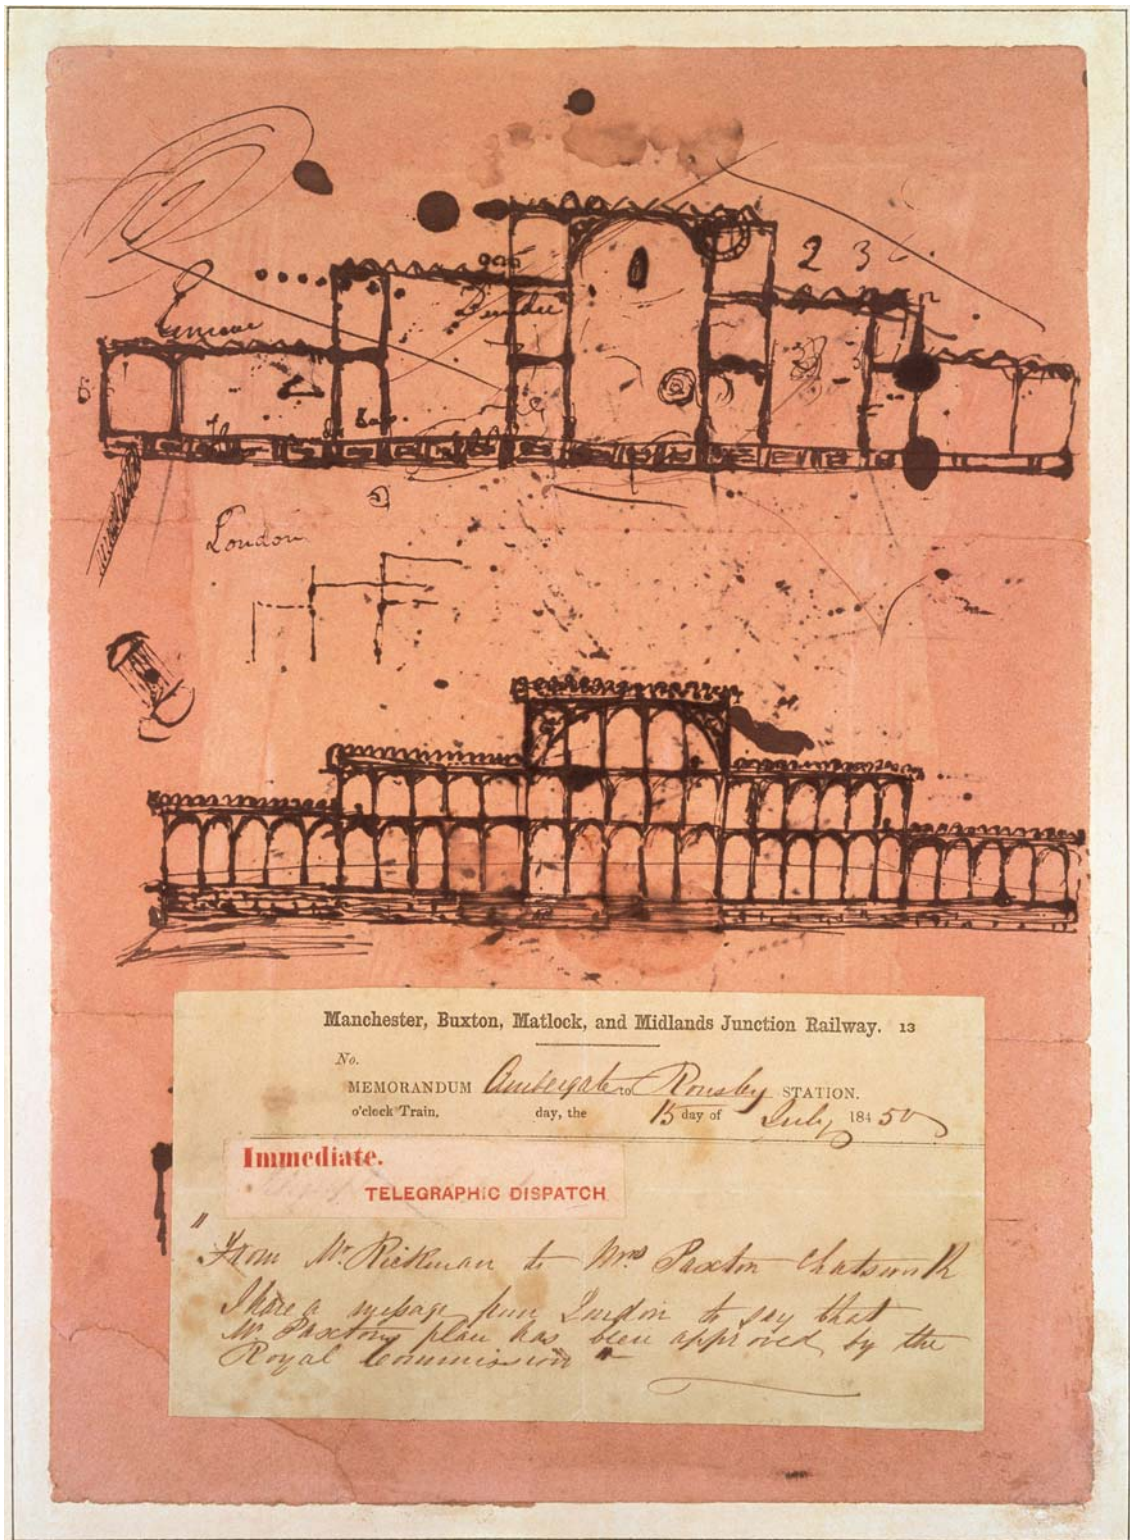 2 3
London
Manchester, Buxton, Matlock, and Midlands Junction Railway. 13
No.
MEMORANDUM Ambergate to Rousley STATION.
o'clock Train, day, the 15 day of July 184 50
Immediate.
TELEGRAPHIC DISPATCH
"From Mr. Rickman to Mrs. Paxton Chatsworth
I have a message from London to say that
Mr. Paxtons plan has been approved by the
Royal Commission"